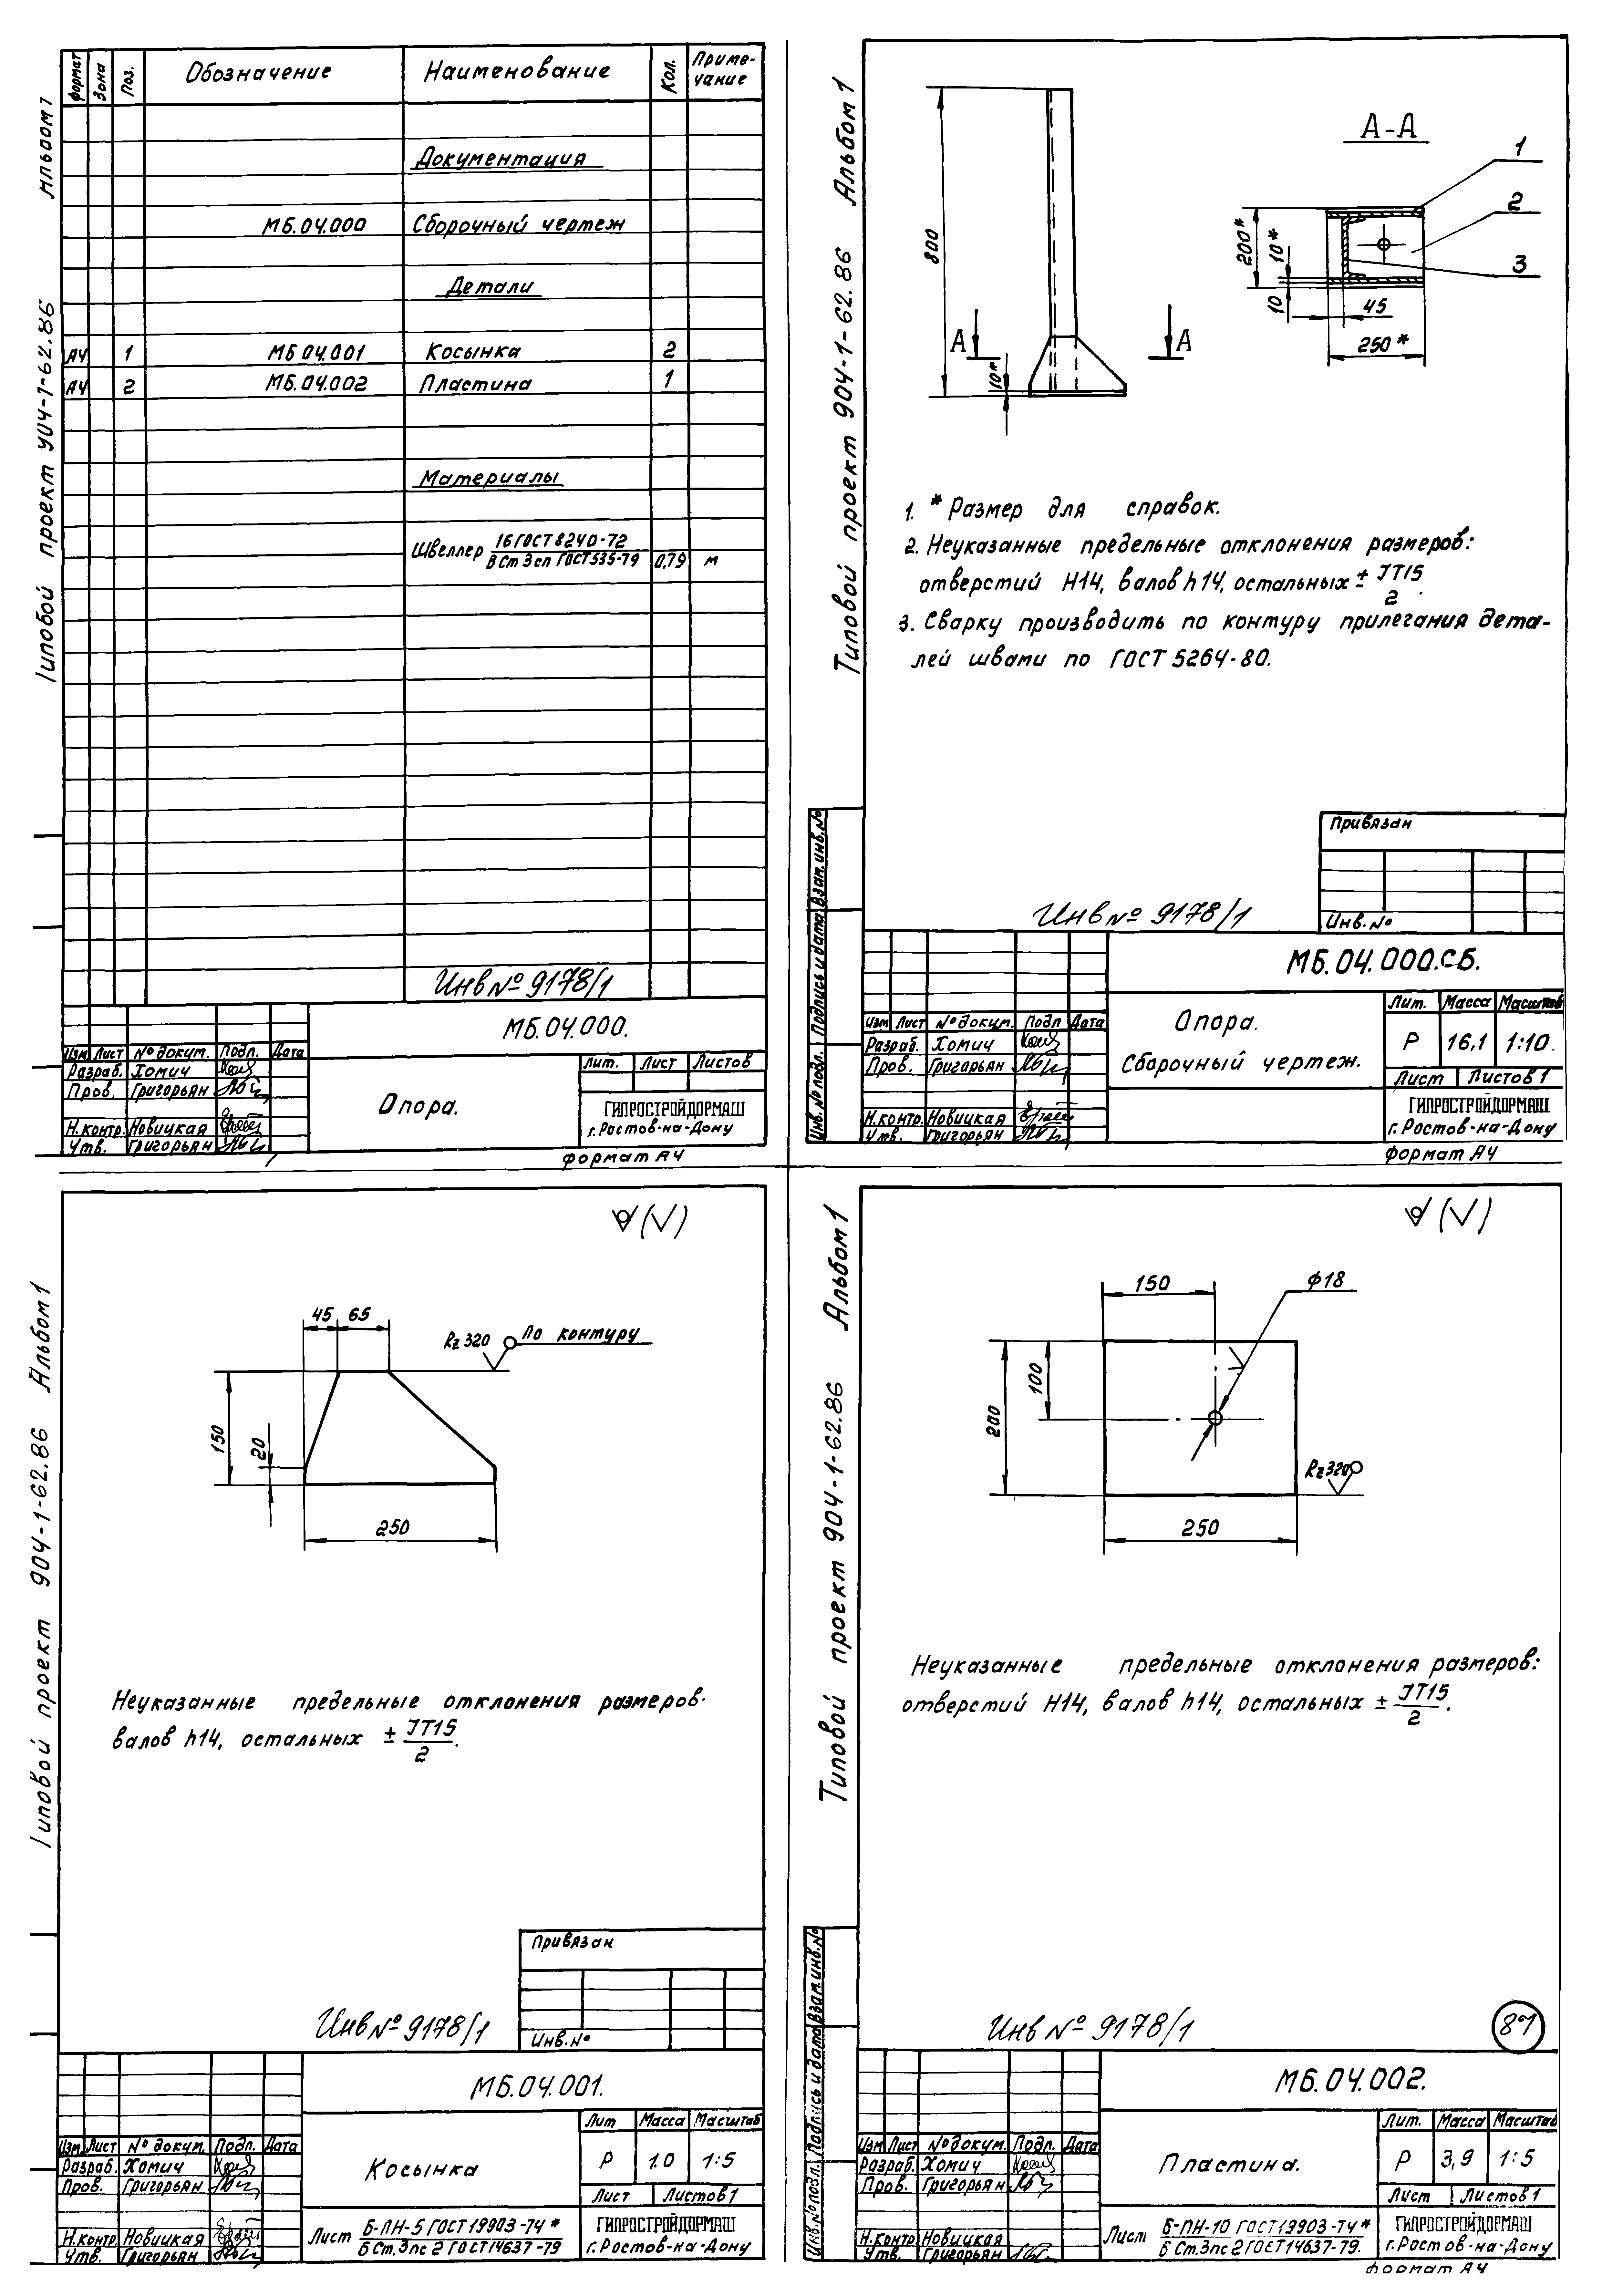 Альбом 1
Типовой проект 904-1-62.86
формат
Зона
Поз.
Обозначение
Наименование
Кол.
Приме-
чание
Документация
МБ.04.000 Сборочный чертеж
Детали
А4 1 МБ 04.001 Косынка 2
А4 2 МБ.04.002 Пластина 1
Материалы
Швеллер 16 ГОСТ 8240-72
В Ст 3 сп ГОСТ 535-79 0,79 м
Инв № 9178/1
МБ.04.000.
Изм Лист № докум. Подп. Дата
Разраб. Хомич
Пров. Григорьян
Н.контр. Новицкая
Утв. Григорьян
Опора.
Лит. Лист Листов
ГИПРОСТРОЙДОРМАШ
г. Ростов-на-Дону
формат А4
Альбом 1
Типовой проект 904-1-62.86
А-А
1
2
3
800
А
А
10*
200*
10*
10
45
250*
1. * Размер для справок.
2. Неуказанные предельные отклонения размеров:
отверстий Н14, валов h14, остальных ± IT15/2.
3. Сварку производить по контуру прилегания дета-
лей швами по ГОСТ 5264-80.
Привязан
Инв.№
Инв № 9178/1
Инв.№ подл. Подпись и дата Взам.инв.№
МБ.04.000.СБ.
Изм Лист № докум. Подп Дата
Разраб. Хомич
Пров. Григорьян
Н.контр. Новицкая
Утв. Григорьян
Опора.
Сборочный чертеж.
Лит. Масса Масштаб
Р 16,1 1:10.
Лист Листов 1
ГИПРОСТРОЙДОРМАШ
г. Ростов-на-Дону
формат А4
Альбом 1
Типовой проект 904-1-62.86
(√)
45 65
Rz 320 По контуру
150
20
250
Неуказанные предельные отклонения размеров.
валов h14, остальных ± IT15/2.
Привязан
Инв.№
Инв № 9178/1
МБ.04.001.
Изм. Лист № докум. Подп. Дата
Разраб. Хомич
Пров. Григорьян
Н.контр. Новицкая
Утв. Григорьян
Косынка
Лит Масса Масштаб
Р 1.0 1:5
Лист Листов 1
Лист Б-ПН-5 ГОСТ 19903-74*
Б Ст.3пс 2 ГОСТ 14637-79
ГИПРОСТРОЙДОРМАШ
г. Ростов-на-Дону
Альбом 1
Типовой проект 904-1-62.86
(√)
150
ϕ18
100
200
Rz 320
250
Неуказанные предельные отклонения размеров:
отверстий Н14, валов h14, остальных ± IT15/2.
Инв № 9178/1
87
Инв.№ подл. Подпись и дата Взам.инв.№
МБ.04.002.
Изм Лист № докум. Подп. Дата
Разраб. Хомич
Пров. Григорьян
Н.контр. Новицкая
Утв. Григорьян
Пластина.
Лит. Масса Масштаб
Р 3,9 1:5
Лист Листов 1
Лист Б-ПН-10 ГОСТ 19903-74*
Б Ст.3пс 2 ГОСТ 14637-79.
ГИПРОСТРОЙДОРМАШ
г. Ростов-на-Дону
формат А4